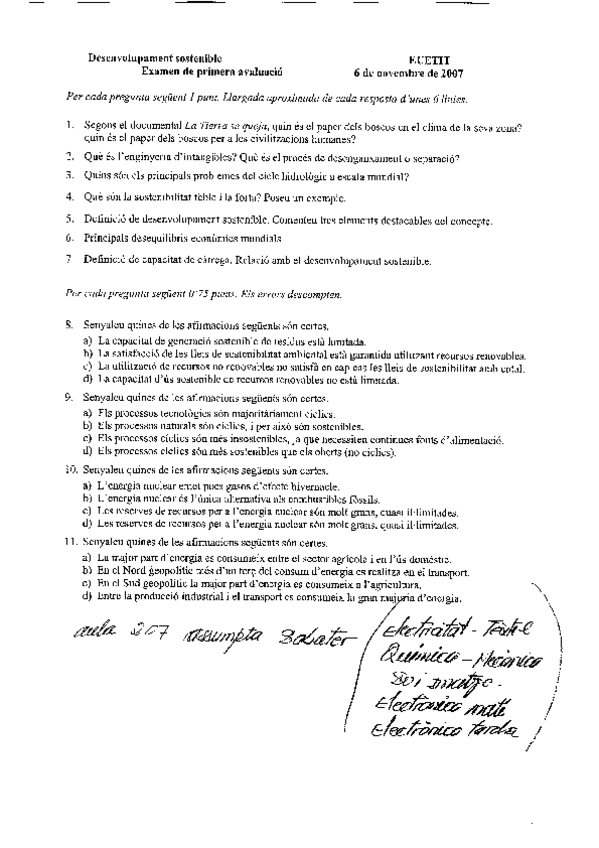 Desenvolupament sostenible EUETIT
Examen de primera avaluació 6 de novembre de 2007
Per cada pregunta següent 1 punt. Llargada aproximada de cada resposta d'unes 6 línies.
1. Segons el documental La Tierra se queja, quin és el paper dels boscos en el clima de la seva zona?
quin és el paper dels boscos per a les civilitzacions humanes?
2. Què és l'enginyeria d'intangibles? Què és el procés de desenganxament o separació?
3. Quins són els principals problemes del cicle hidrològic a escala mundial?
4. Què són la sostenibilitat feble i la forta? Poseu un exemple.
5. Definició de desenvolupament sostenible. Comenteu tres elements destacables del concepte.
6. Principals desequilibris econòmics mundials
7 Definició de capacitat de càrrega. Relació amb el desenvolupament sostenible.
Per cada pregunta següent 0'75 punts. Els errors descompten.
8. Senyaleu quines de les afirmacions següents són certes.
a) La capacitat de generació sostenible de residus està limitada.
b) La satisfacció de les lleis de sostenibilitat ambiental està garantida utilitzant recursos renovables.
c) La utilització de recursos no renovables no satisfà en cap cas les lleis de sostenibilitat ambiental.
d) La capacitat d'ús sostenible de recursos renovables no està limitada.
9. Senyaleu quines de les afirmacions següents són certes.
a) Els processos tecnològics són majoritàriament cíclics.
b) Els processos naturals són cíclics, i per això són sostenibles.
c) Els processos cíclics són més insostenibles, ja que necessiten contínues fonts d'alimentació.
d) Els processos cíclics són més sostenibles que els oberts (no cíclics).
10. Senyaleu quines de les afirmacions següents són certes.
a) L'energia nuclear emet pocs gasos d'efecte hivernacle.
b) L'energia nuclear és l'única alternativa als combustibles fòssils.
c) Les reserves de recursos per a l'energia nuclear són molt grans, quasi il·limitades.
d) Les reserves de recursos per a l'energia nuclear són molt grans, quasi il·limitades.
11. Senyaleu quines de les afirmacions següents són certes.
a) La major part d'energia es consumeix entre el sector agrícola i en l'ús domèstic.
b) En el Nord geopolític més d'un terç del consum d'energia es realitza en el transport.
c) En el Sud geopolític la major part d'energia es consumeix a l'agricultura.
d) Entre la producció industrial i el transport es consumeix la gran majoria d'energia.
aula 207 Assumpta Sabater
Electricitat - Tèxtil
Química - Mecànica
So i imatge -
Electrònica matí
Electrònica tarda